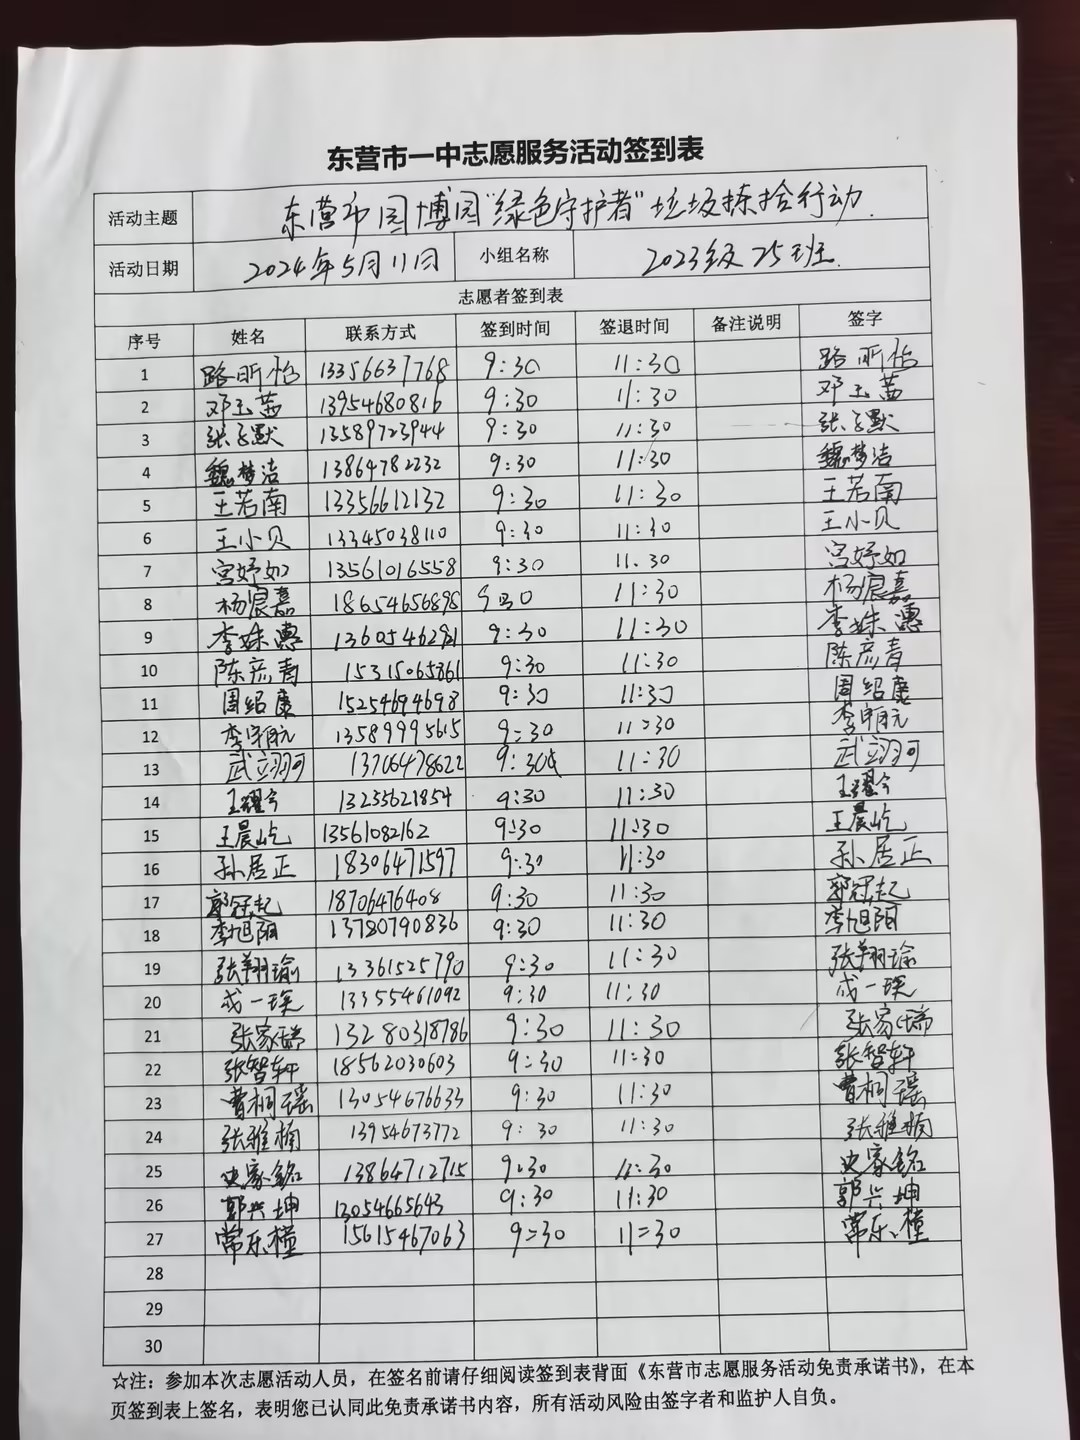 东营市一中志愿服务活动签到表
活动主题 东营市园博园“绿色守护者”垃圾拣拾行动.
活动日期 2024年5月11日 小组名称 2023级25班.
志愿者签到表
序号 姓名 联系方式 签到时间 签退时间 备注说明 签字
1 路昕怡 13356637768 9:30 11:30 路昕怡
2 邓玉茜 13954680816 9:30 11:30 邓玉茜
3 张子默 13589723944 9:30 11:30 张子默
4 魏梦洁 13864782232 9:30 11:30 魏梦洁
5 王若南 13356612132 9:30 11:30 王若南
6 王小贝 13345038110 9:30 11:30 王小贝
7 宫妤如 13561016558 9:30 11.30 宫妤如
8 杨宸嘉 18654656898 9 30 11:30 杨宸嘉
9 李姝漶 13605462921 9:30 11:30 李姝漶
10 陈彦青 15315065861 9:30 11:30 陈彦青
11 周绍康 15254694698 9:30 11:30 周绍康
12 李宇航 13589995615 9:30 11:30 李宇航
13 武翊珂 13706478622 9:30 11:30 武翊珂
14 王耀兮 13255621854 9:30 11:30 王耀兮
15 王晨屹 13561082162 9:30 11:30 王晨屹
16 孙居正 18306471597 9:30 11:30 孙居正
17 郭冠起 18706476408 9:30 11:30 郭冠起
18 李旭阳 13780790836 9:30 11:30 李旭阳
19 张翔瑜 13361525790 9:30 11:30 张翔瑜
20 成一瑛 13355461092 9:30 11:30 成一瑛
21 张家瑞 13280318786 9:30 11:30 张家瑞
22 张智轩 18562030603 9:30 11:30 张智轩
23 曹桐瑶 13054676633 9:30 11:30 曹桐瑶
24 张雅楠 13954673772 9:30 11:30 张雅楠
25 史家铭 13864712715 9:30 11:30 史家铭
26 郭兴坤 13054665643 9:30 11:30 郭兴坤
27 常乐橦 15615467063 9:30 11:30 常乐橦
28
29
30
☆注：参加本次志愿活动人员，在签名前请仔细阅读签到表背面《东营市志愿服务活动免责承诺书》，在本
页签到表上签名，表明您已认同此免责承诺书内容，所有活动风险由签字者和监护人自负。